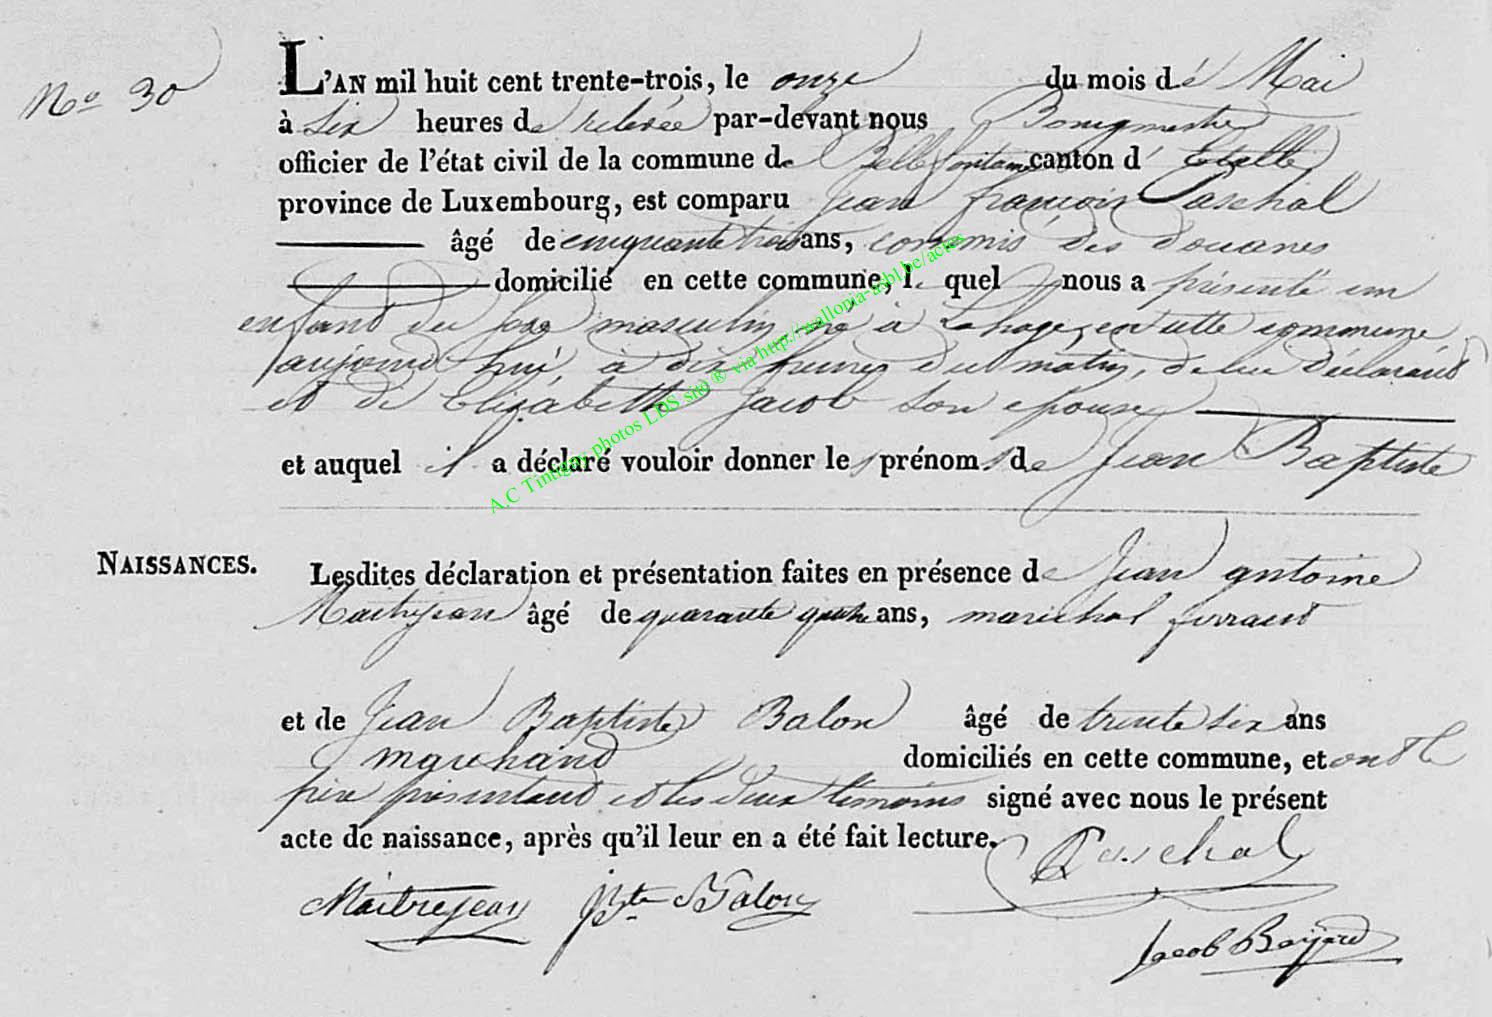 No 30
L'AN mil huit cent trente-trois, le onze du mois de Mai
à six heures de relevée par-devant nous Bourgmestre
officier de l'état civil de la commune de Bellefontaine canton d' Etalle
province de Luxembourg, est comparu Jean françois Paschal
âgé de cinquante trois ans, commis des douanes
domicilié en cette commune, le quel nous a présenté un
enfant du sexe masculin né à Lahage, en cette commune
aujourd'hui à dix heures du matin, de lui déclarant
et de Elizabeth Jacob son epouse
et auquel il a déclaré vouloir donner les prénoms de Jean Baptiste
NAISSANCES.
Lesdites déclaration et présentation faites en présence de Jean antoine
Maitrejean âgé de quarante quatre ans, marechal ferrant
et de Jean Baptiste Balon âgé de trente six ans
marchand domiciliés en cette commune, et ont le
père présentant et les deux témoins signé avec nous le présent
acte de naissance, après qu'il leur en a été fait lecture.
Paschal
Maitrejean JBte Balon
Jacob
A.C Tintigny photos LDS sito ® via http://wallonia-asbl.be/actes